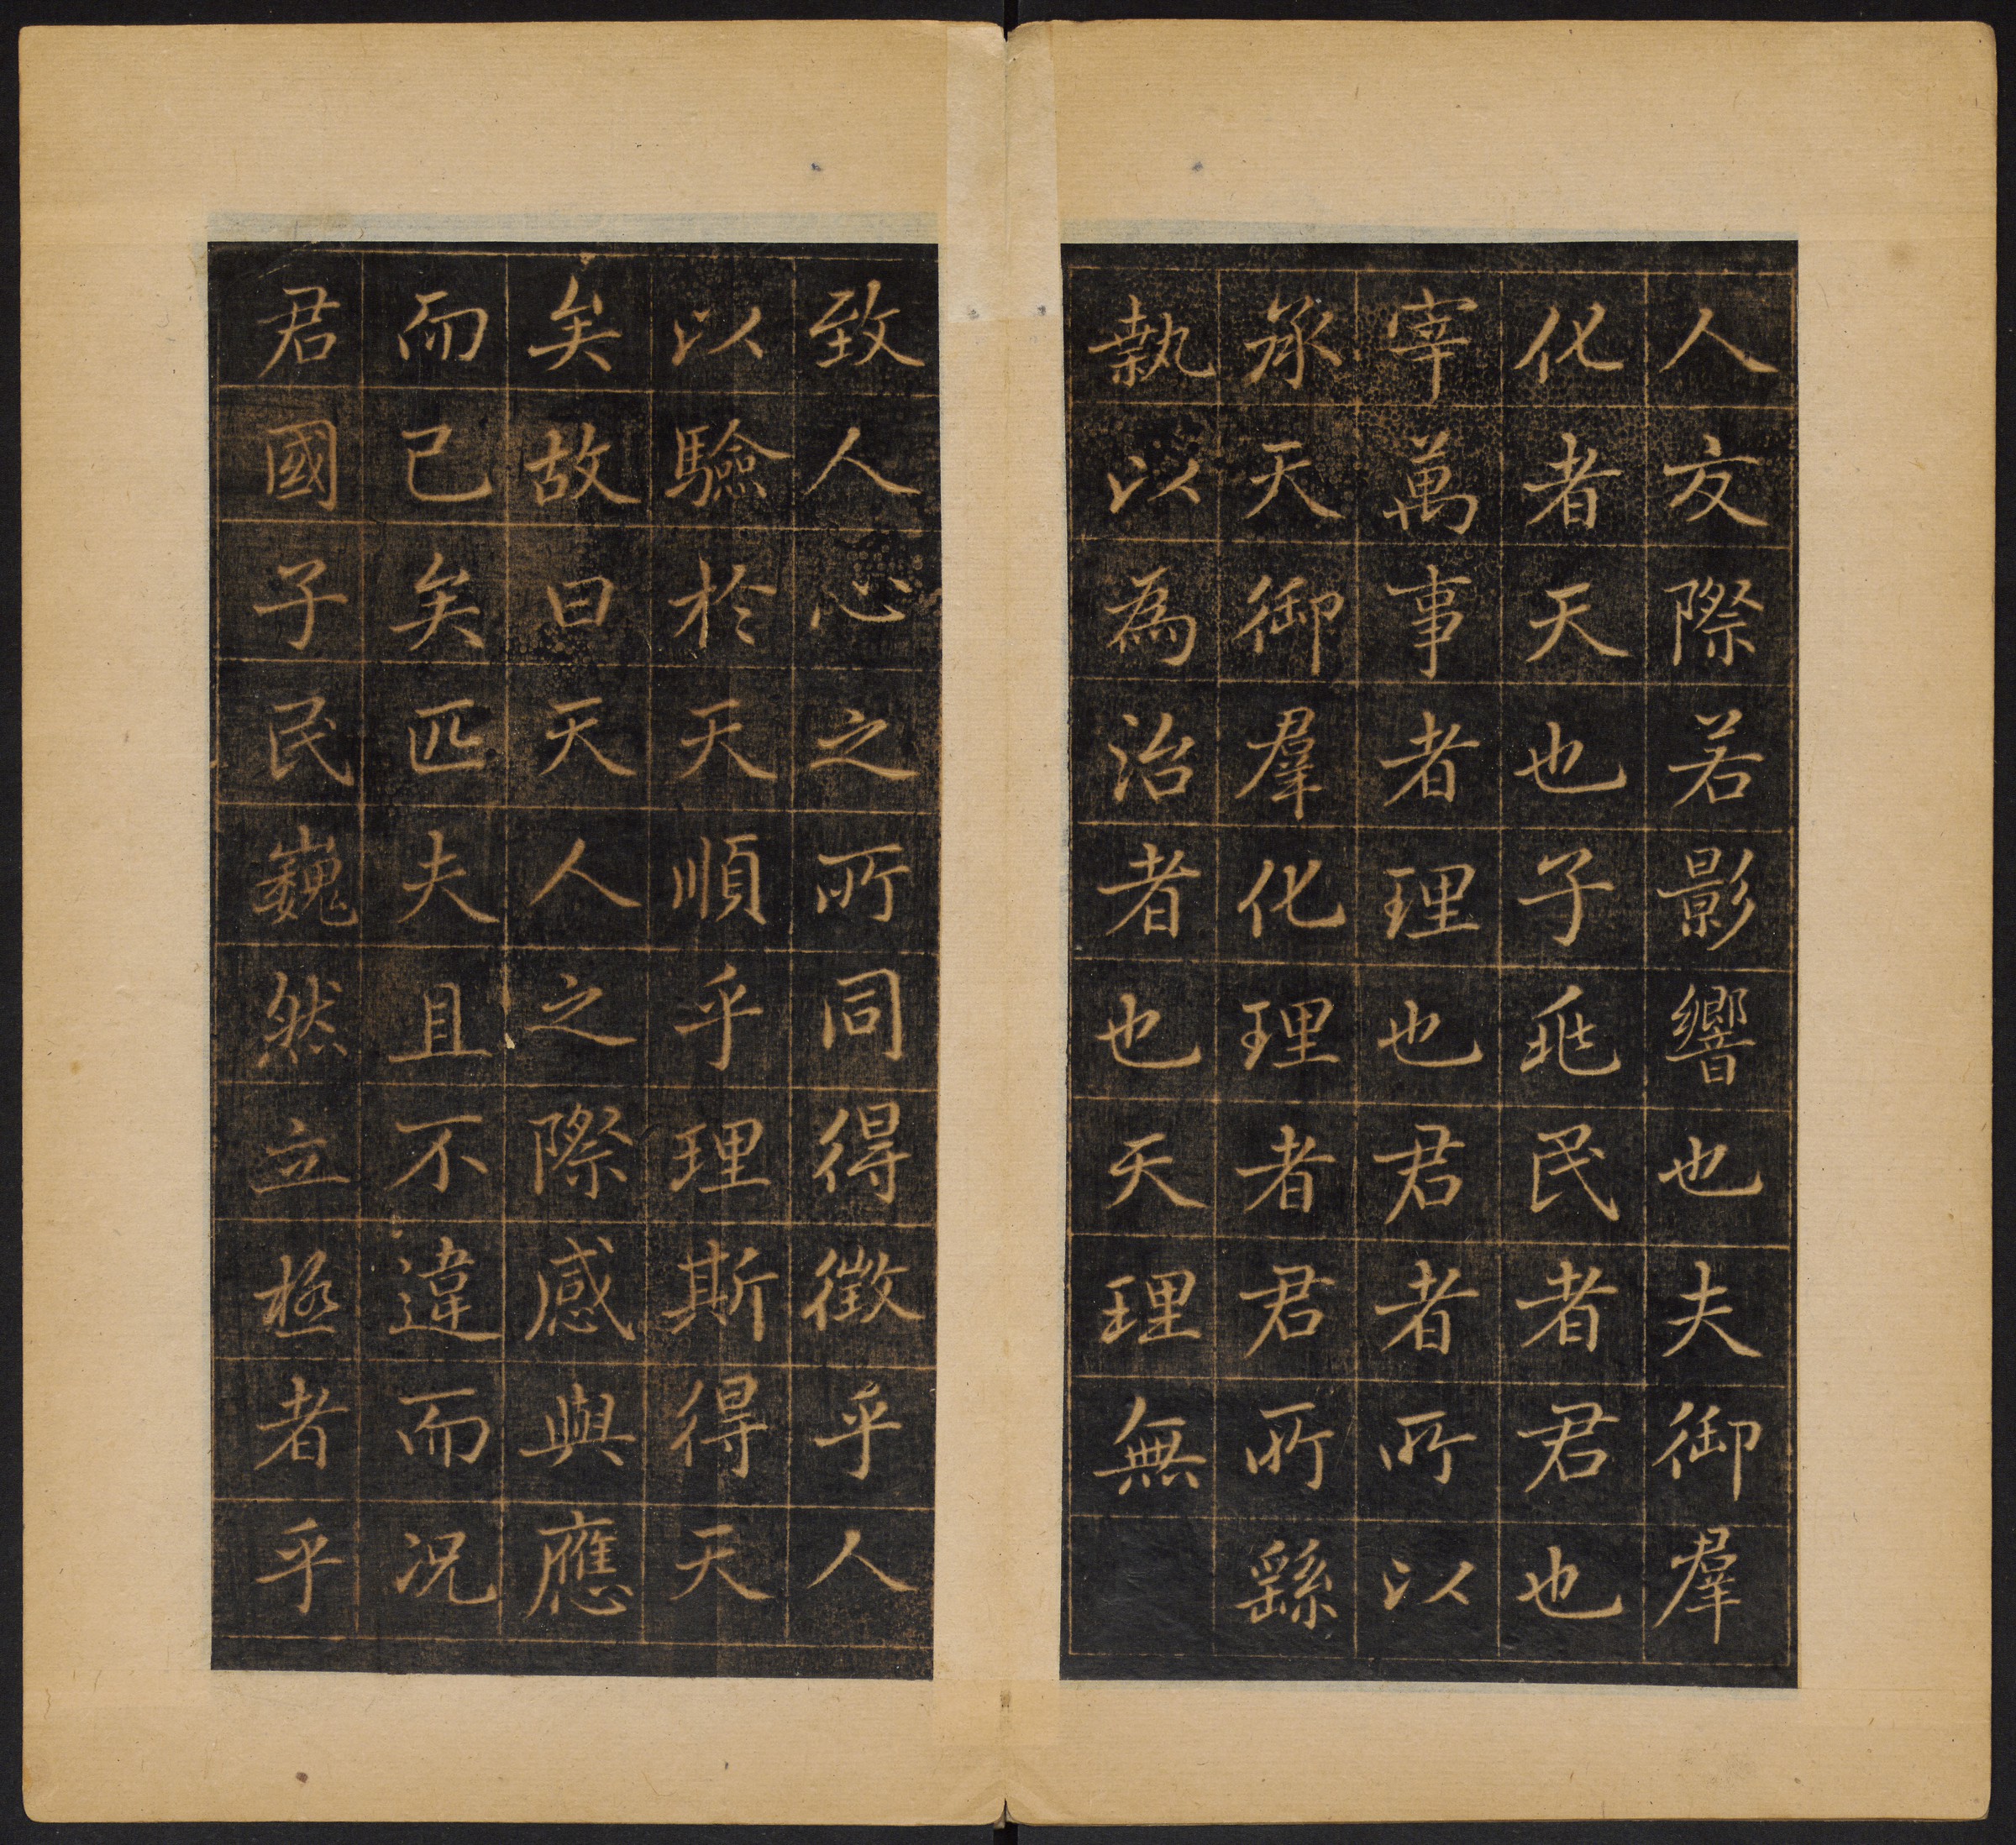 人交際若影響也夫御羣
化者天也子兆民者君也
宰萬事者理也君者所以
承天御羣化理者君所繇
執以為治者也天理無
致人心之所同得徵乎人
以驗於天順乎理斯得天
矣故曰天人之際感與應
而已矣匹夫且不違而況
君國子民巍然立極者乎